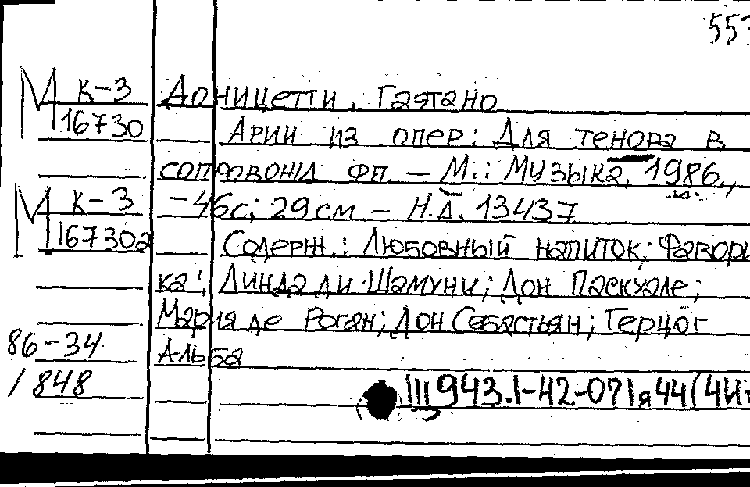 553
К-3 Доницетти, Гаэтано
16730 Арии из опер: Для тенора в
сопровожд фп. – М.: Музыка, 1986.,
К-3 – 46с; 29см – Н.Д. 13437
16730а Содерж.: Любовный напиток; Фавори
ка; Линда ди Шамуни; Дон Паскуале;
Мария де Роган; Дон Себастьян; Герцог
86-34 Альба
/848 Щ943.1-42-071я44(4И